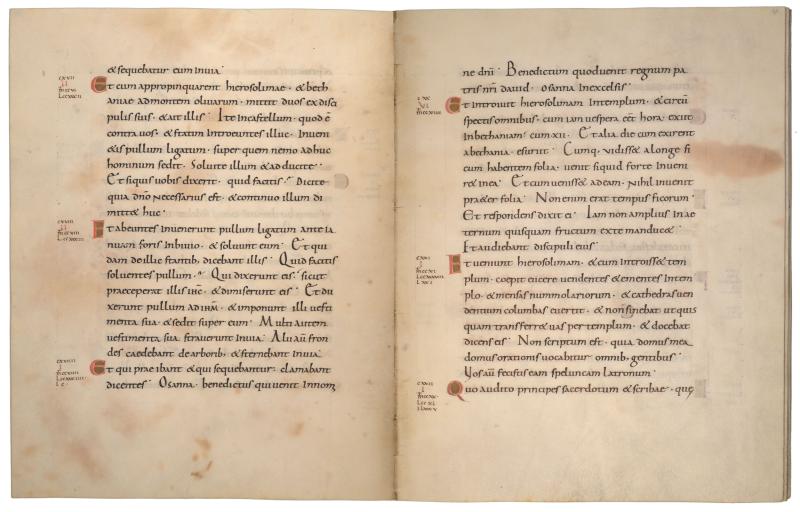 & sequebatur eum inuia·
Et cum appropinquarent hierosolimae· & beth
aniae admontem oliuarum· mittit duos exdisci
pulis suis· & ait illis· Ite incastellum· quod ÷
contra uos· & statim introeuntes illuc· Inueni
&is pullum ligatum· super quem nemo adhuc
hominum sedit· Soluite illum & adducite·
Et siquis uobis dixerit· quid facitis? Dicite
quia dno necessarius est· & continuo illum di
mitt& huc·
Et abeuntes inuenerunt pullum ligatum ante ia
nuam foris inbiuio· & soluunt eum· Et qui
dam deillic stantib; dicebant illis· Quid facitis
soluentes pullum? Qui dixerunt eis· sicut
praeceperat illis ihc· & dimiserunt eis· Et du
xerunt pullum ad ihm· & imponunt illi uesti
menta sua· & sedit super eum· Multi autem
uestimenta sua strauerunt inuia· Alii aū fron
des caedebant de arborib; & sternebant inuia·
Et qui prae ibant & qui sequebantur· clamabant
dicentes· Osanna· benedictus qui uenit innom
ne dni· Benedictum quod uenit regnum pa
tris nri dauid· Osanna inexcelsis·
Et introiuit hierosolimam intemplum· & circū
spectis omnibus· cum iam uespera ess& hora· exiit
inbethaniam· cum xii· Et alia die cum exirent
abethania· esuriit· Cumq; uidiss& alonge fi
cum habentem folia· uenit siquid forte inueni
r& inea· Et cum ueniss& adeam· Nihil inuenit
praeter folia· Non enim erat tempus ficorum·
Et respondens dixit ei· Iam non amplius inae
ternum quisquam fructum exte manduc&·
Et audiebant discipuli eius·
Et ueniunt hierosolimam· & cum introiss& tem
plum· coepit eicere uendentes & ementes intem
plo· & mensas nummolariorum· & cathedras uen
dentium columbas euertit· & non sinebat ut quis
quam transferr& uas per templum· & docebat
dicens eis· Non scriptum est· quia domus mea
domus orationis uocabitur omnib; gentibus·
Uos aū fecistis eam speluncam latronum·
Quo audito principes sacerdotum & scribae· que